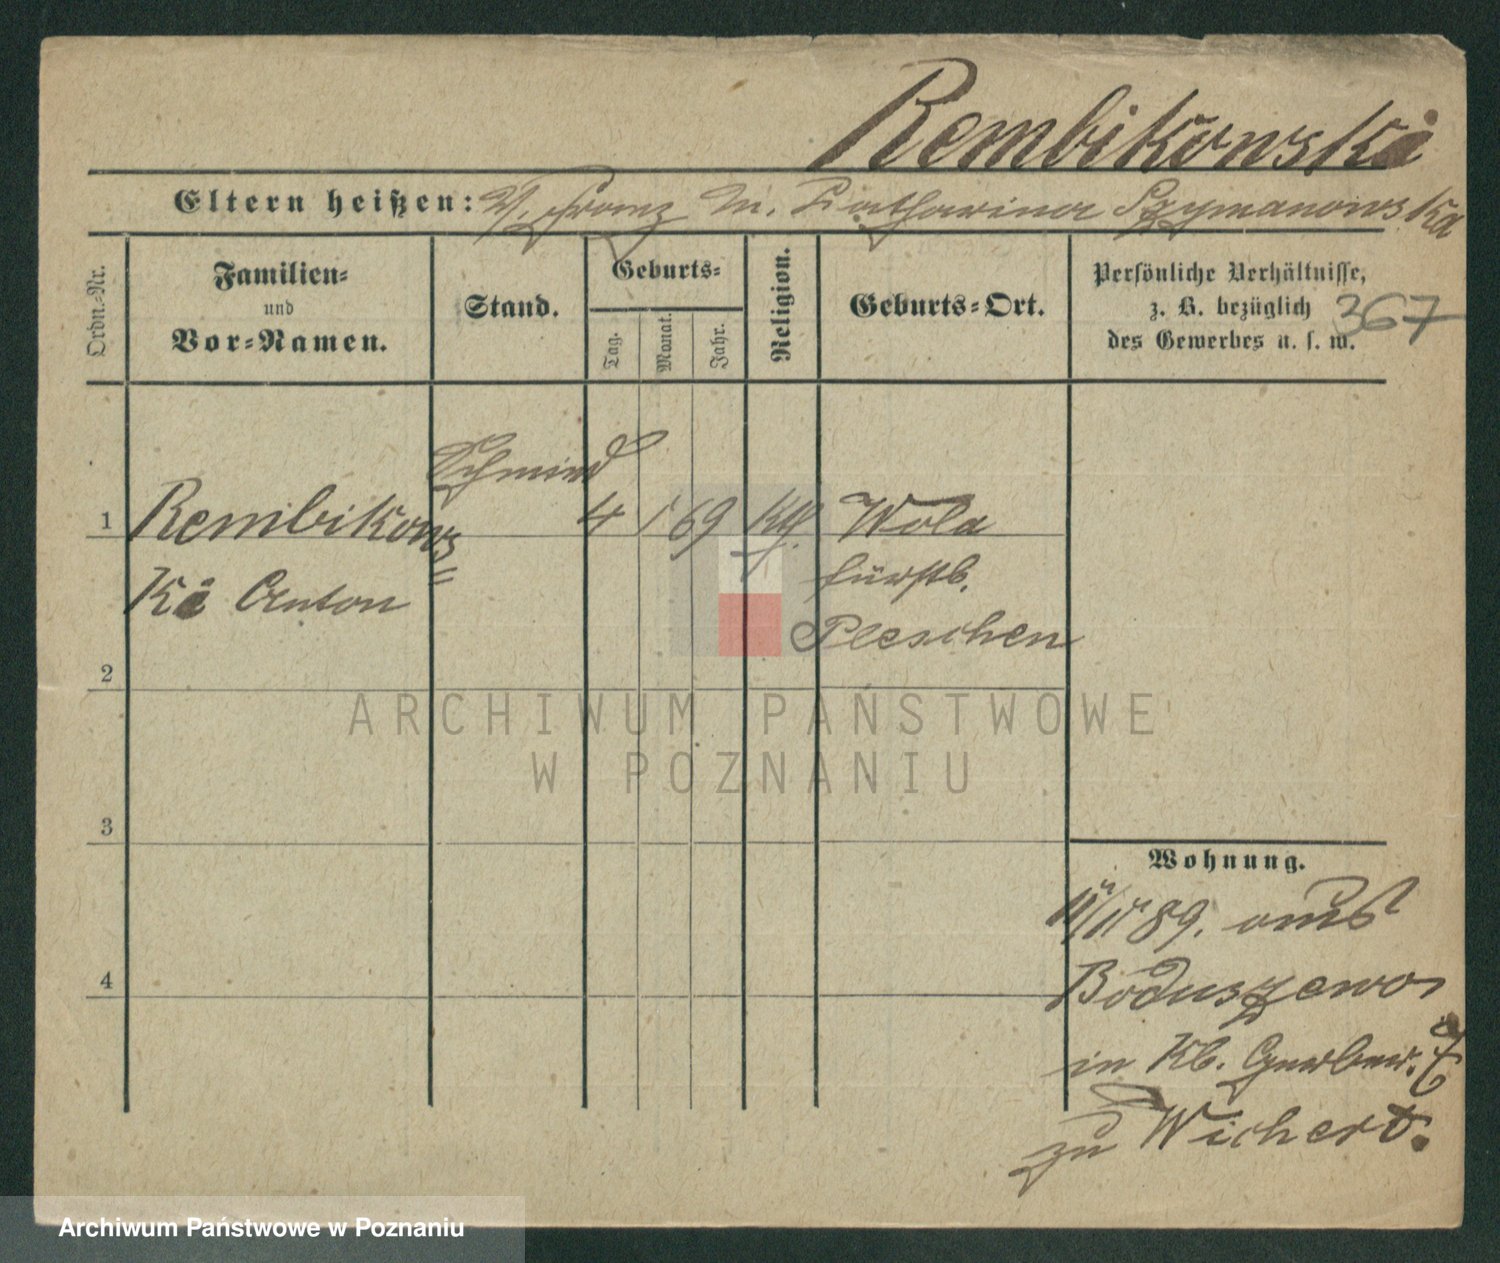 Rembikowski
Eltern heißen: V. Franz M. Katharina Szymanowska
Ordn.-Nr.
Familien-
und
Vor-Namen.
Stand.
Geburts-
Tag.
Monat.
Jahr.
Religion.
Geburts-Ort.
Persönliche Verhältnisse,
z. B. bezüglich
des Gewerbes u. s. w.
367
Schmied
1 Rembikows= 4 1 69 Kth. Wola
ki Anton fürstl.
Pleschen
2
ARCHIWUM PAŃSTWOWE
W POZNANIU
3
Wohnung.
89. aus
4 Boduszewo
in Kb. Gerber.
zu Wichert.
Archiwum Państwowe w Poznaniu